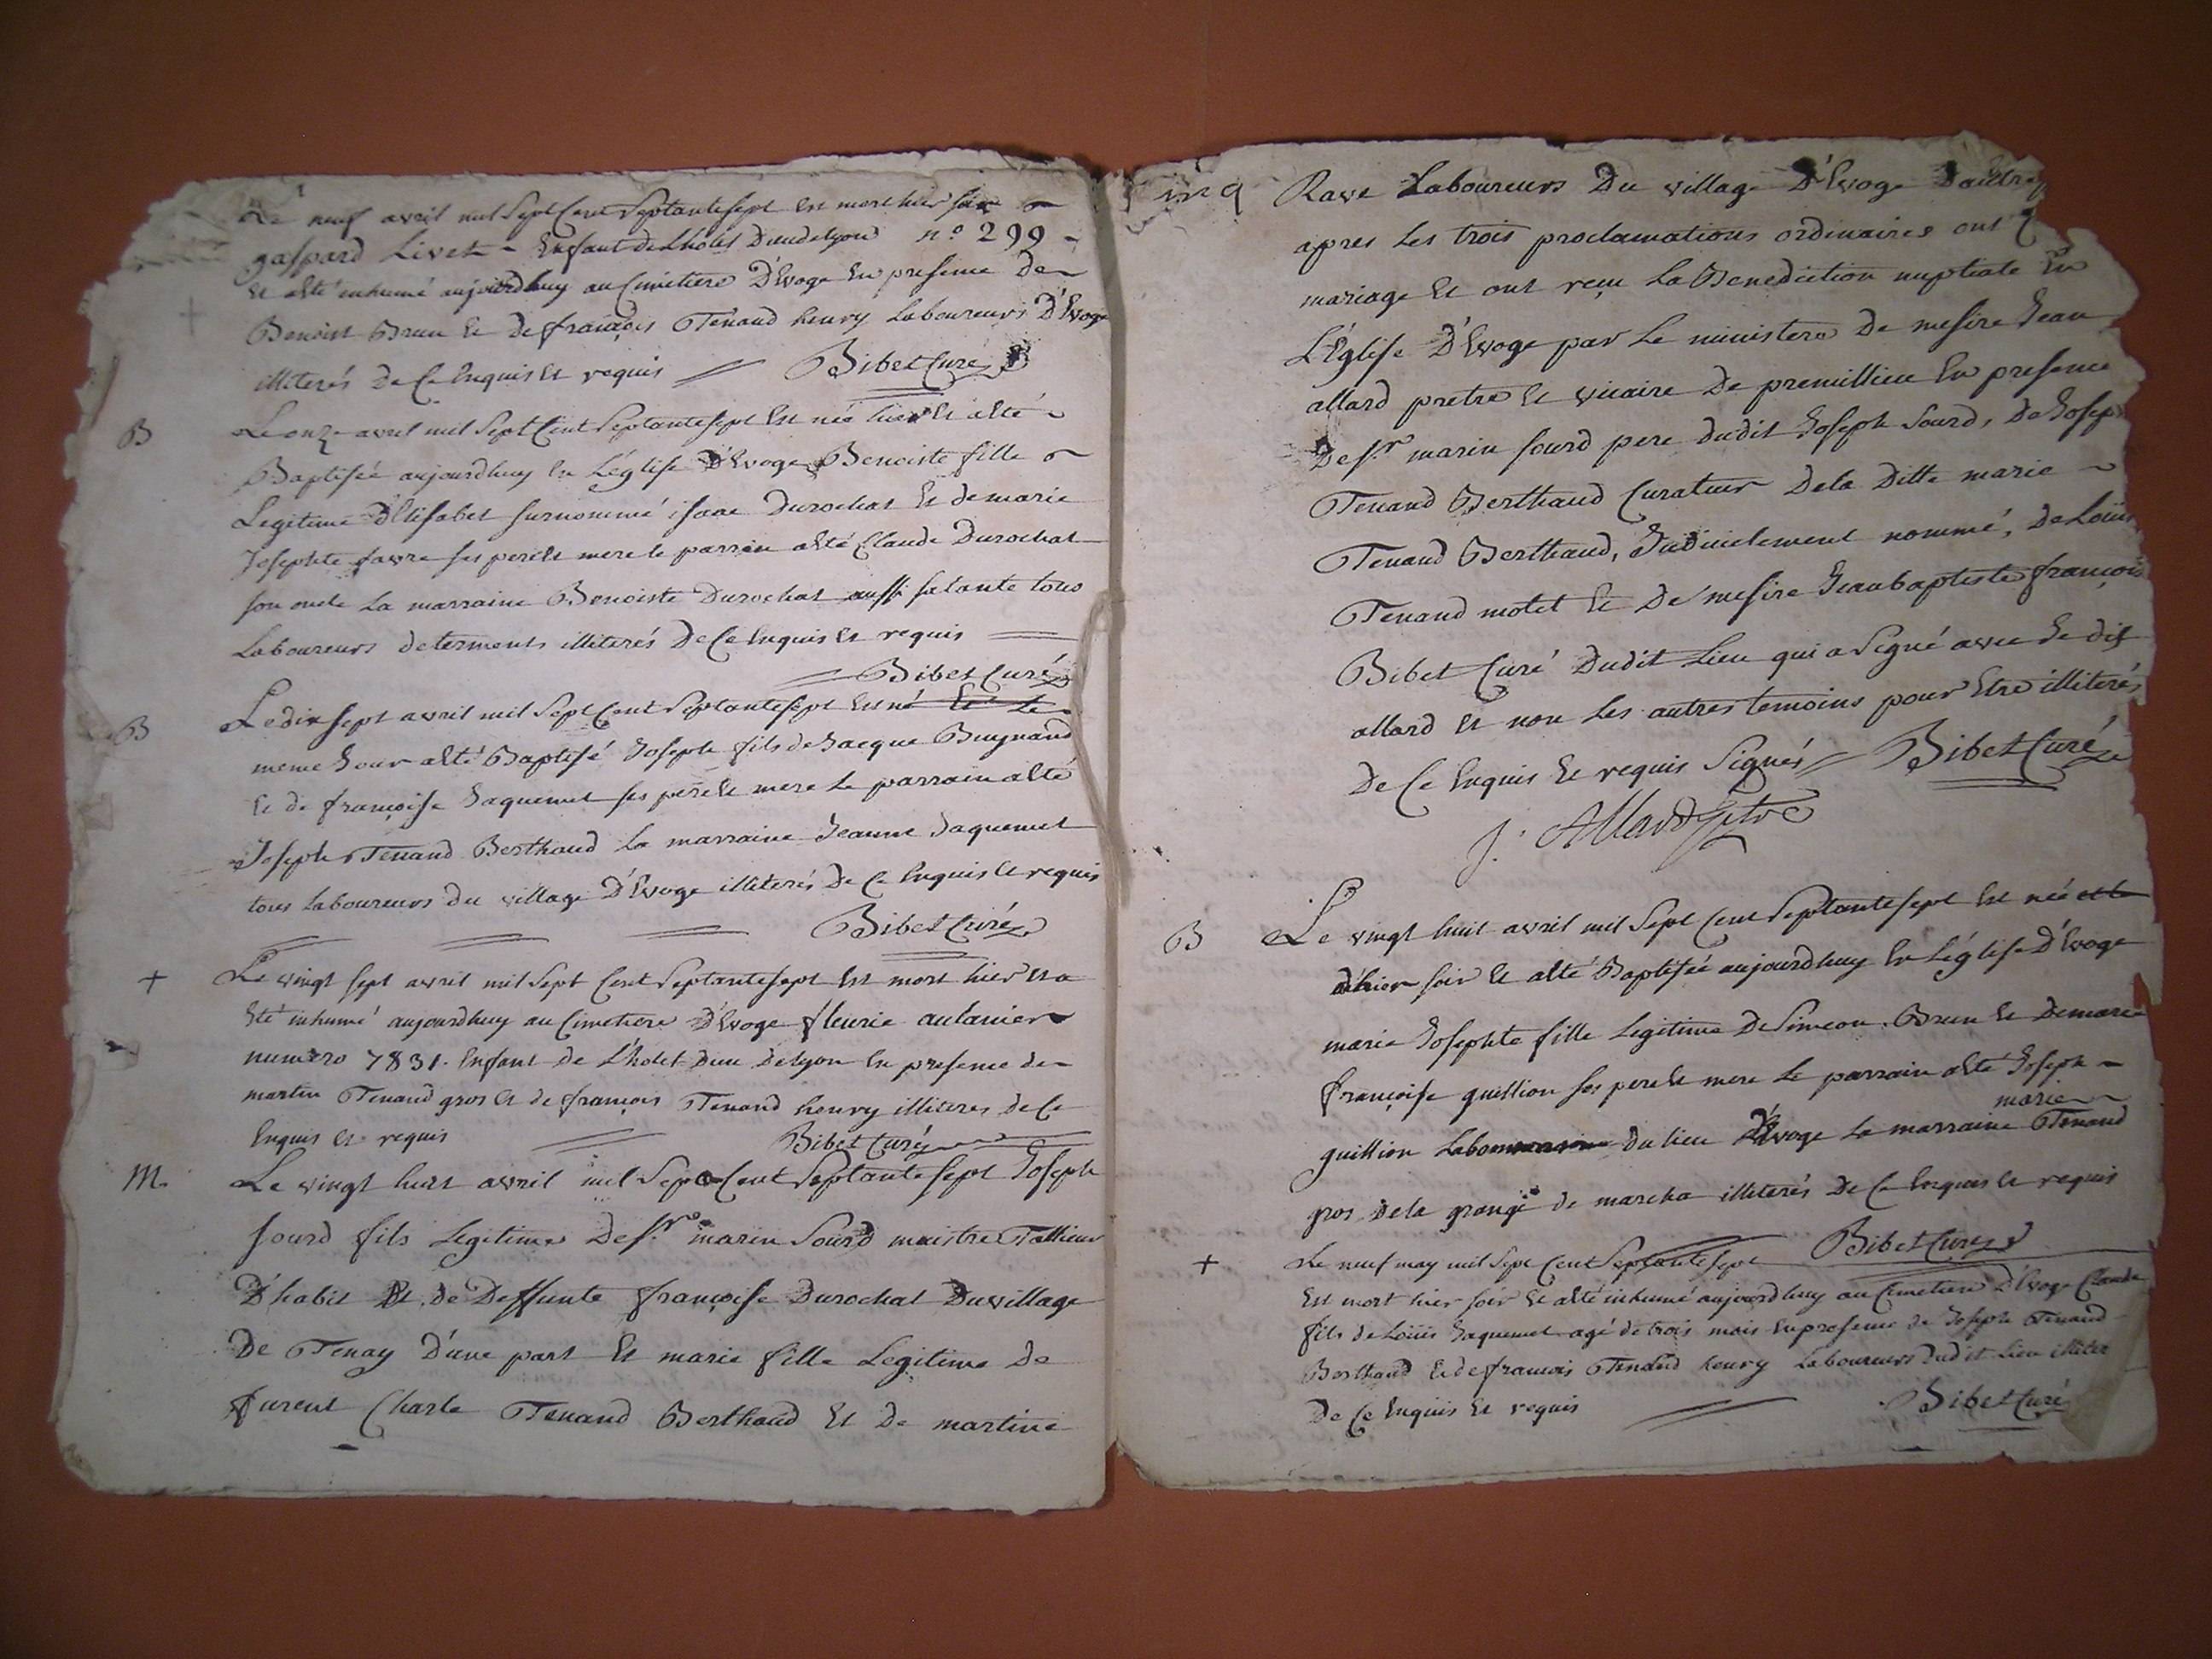 Le neuf avril mil Sept Cent Septantesept Est mort hier soir
gaspard Livet - Enfant de Lhotel Dieu delyon n.o 299 -
Et alté inhumé aujourdhuy au Cimetiere D'Evoge En presence De
Benoist Brun Et De françois Tenand henry Laboureurs D'Evoge
illiterés De Ce Enquis Et requis Bibet Curé
B
Le onze avril mil Sept Cent Septantesept Est née hier Et alté
Baptisée aujourdhuy En L'église D'Evoge Benoiste fille
Legitime D'Elisabet surnommé isaac Durochat Et de marie
Josephte favre ses pere Et mere le parrein alté Claude Durochat
son oncle La marraine Benoiste Durochat aussi sa tante tous
Laboureurs de terments illiterés De Ce Enquis Et requis
Bibet Curé
B
Le dix sept avril mil Sept Cent Septantesept Est né Et Le
meme Jour alté Baptisé Joseph fils de Jacque Bugnand
Et de françoise Jaquemet ses pere Et mere Le parrain alté
Joseph Tenand Berthaud La marraine Jeanne Jaquemet
tous Laboureurs du village D'Evoge illiterés De Ce Enquis Et requis
Bibet Curé
+
Le vingt sept avril mil Sept Cent Septantesept Est mort hier Et a
Eté inhumé aujourdhuy au Cimetiere D'Evoge fleurie aulanier
numero 7831. Enfant de L'hotel Dieu Delyon En presence de
martin Tenand gros Et de françois Tenand henry illiteres de Ce
Enquis Et requis Bibet Curé
M.
Le vingt huit avril mil Sept Cent Septante sept Joseph
Sourd fils Legitime De Sr. marin Sourd maistre Tallieur
D'habit Et de Deffunte françoise Durochat Du village
De Tenay D'une part Et marie fille Legitime De
furent Charle Tenand Berthaud Et De martine
Rave Laboureurs Du village D'Evoge D'autre
apres Les trois proclamations ordinaires ont
mariage Et ont reçu La Benediction nuptiale En
L'Eglise D'Evoge par Le ministere De mesire Jean
allard pretre Et vicaire De premillieu En presence
De Sr marin Sourd pere dudit Joseph Sourd, De Joseph
Tenand Berthaud Curateur De la Ditte marie
Tenand Berthaud, Judicielement nommé, De Loüis
Tenand motet Et De mesire Jeanbaptiste françois
Bibet Curé Dudit Lieu qui a Signé avec Le dit
allard Et non Les autres temoins pour Etre illiterés
De Ce Enquis Et requis Signés Bibet Curé
J. Allard ptre
B
Le vingt huit avril mil Sept Cent Septantesept Est née et le
d'hier soir Et alté Baptisée aujourdhuy En L'église D'Evoge
marie Josephte fille Legitime De Simeon Brun Et De marie
françoise guillion ses pere Et mere Le parrain alté Joseph
marie
guillion Du lieu D'Evoge La marraine Tenand
gros De la grange de marcha illiterés De Ce Enquis Et requis
Bibet Curé
+
Le neuf may mil Sept Cent Septantesept
Est mort hier soir Et alté inhumé aujourdhuy au Cimetiere D'Evoge Claude
fils de Loüis Jaquemet agé de trois mois En presence de Joseph Tenand
Berthaud Et de françois Tenand henry Laboureurs Dudit Lieu illiter
De Ce Enquis Et requis Bibet Curé